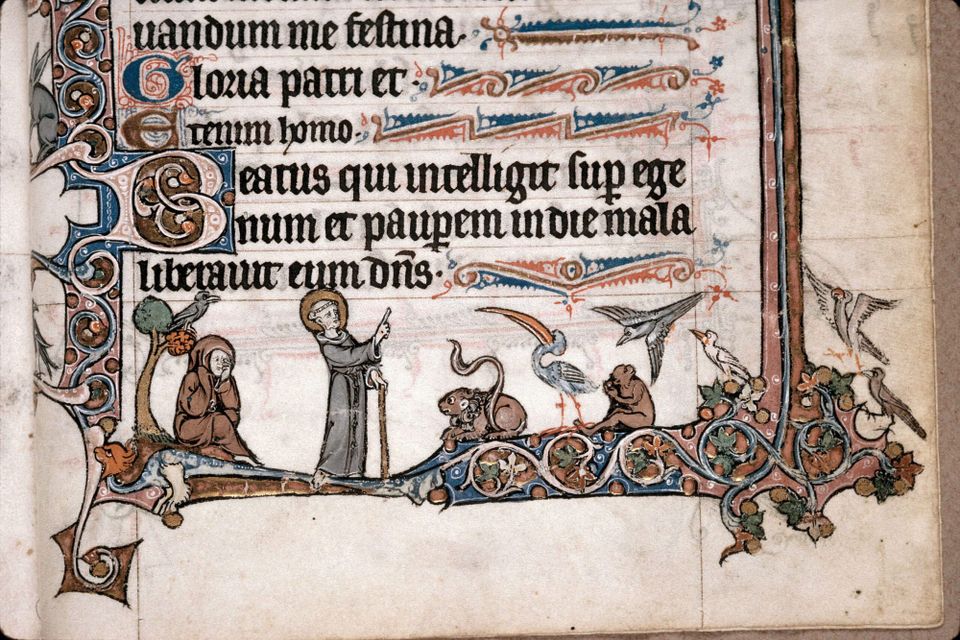 uandum me festina.
Gloria patri et.
Etenim homo.
Beatus qui intelligit sup ege
num et paupem in die mala
liberauit eum dns.